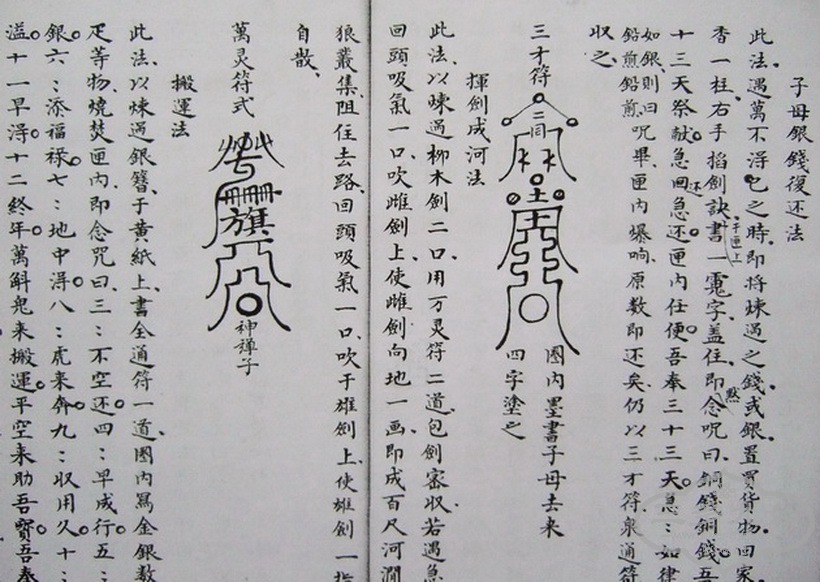 子母銀錢復还法
此法遇萬不得已之時。即将煉過之錢。或銀置買貨物。回家
香一柱、右手掐劍訣書于匣上一字盖住、即黙念咒曰、銅錢銅錢吾
十三天祭献急回还急还匣内任便吾奉三十三天急：如律
如銀、則曰
鉛煎鉛煎
呪畢、匣内爆响、原数即还矣、仍以三才符泉通符
収之、
三才符
圏内墨書子母去来
四字塗之
揮劍成河法
此法、以煉過柳木劍二口、用万灵符二道、包劍密収、若遇急
回頭吸氣一口、吹雌劍上、使雌劍向地一画、即成百尺河澗
狼叢集、阻住去路、回頭吸氣一口、吹于雄劍上、使雄劍一指
自散、
萬灵符式
神子
搬運法
此法、以煉過銀簪、于黄紙上、書全道符一道、圏内寫金銀数
疋等物、燒焚匣内、即念咒曰、三：不空还。四：早成行。五：
銀。六：添福禄。七：地中得。八：虎来奔。九：収用久。十：
溢。十一早得。十二終年。萬斛鬼来搬運。平空来助吾寳。吾奉